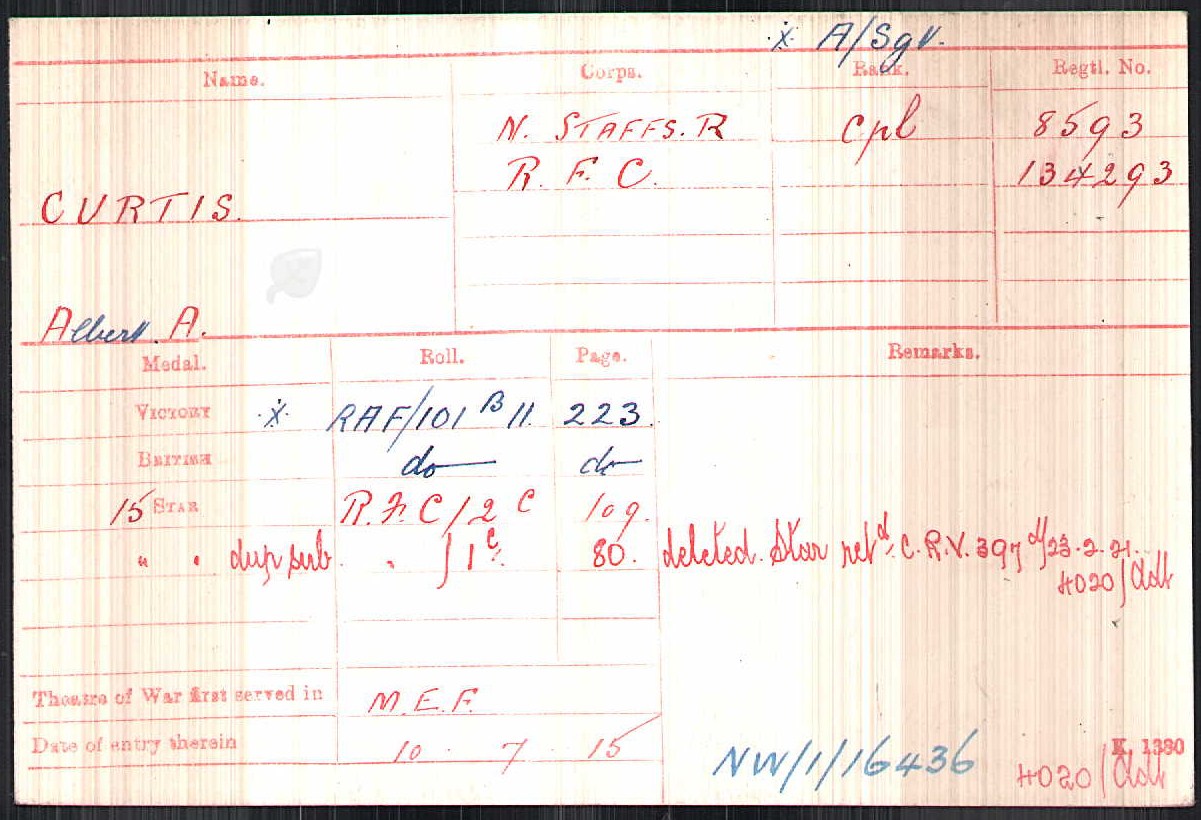 ·x· A/Sgt.
Name. Corps. Rank. Regtl. No.
N. STAFFS. R Cpl 8593
R. F. C. 134293
CURTIS.
Albert A.
Medal. Roll. Page. Remarks.
VICTORY ·x· RAF/101 B 11. 223.
BRITISH do do
15 STAR R.F.C/2 C 109.
" " dup. sub. " /1 C. 80. deleted. Star retd. C.R.V. 397 d/23.2.21.
4020/Adt
Theatre of War first served in M.E.F.
Date of entry therein 10 · 7 · 15
NW/1/16436
K. 1380
4020/Adt